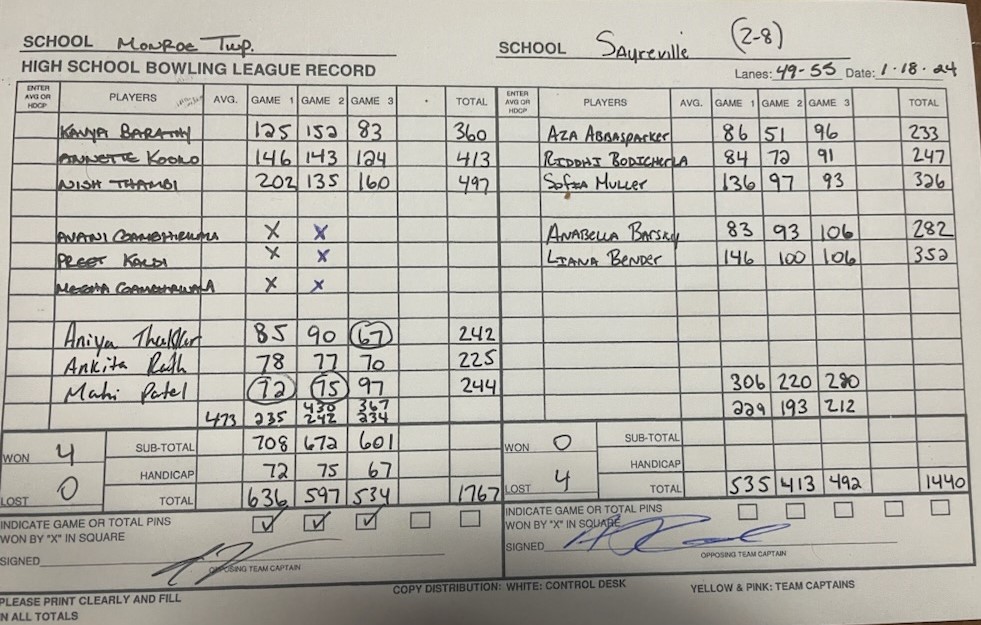 SCHOOL Monroe Twp.
SCHOOL Sayreville (2-8)
HIGH SCHOOL BOWLING LEAGUE RECORD
Lanes: 49-55 Date: 1-18-24
ENTER AVG OR HDCP PLAYERS AVG. GAME 1 GAME 2 GAME 3 TOTAL ENTER AVG OR HDCP PLAYERS AVG. GAME 1 GAME 2 GAME 3 TOTAL
KAVYA BARATHY 125 152 83 360 AZA ABBASPARKER 86 51 96 233
ANNETTE KOOKO 146 143 124 413 RIDDHI BODICHERLA 84 72 91 247
NISH THAMBI 202 135 160 497 SOFIA MULLER 136 97 93 326
AVANI X X ANABELLA BARSKY 83 93 106 282
PREET X X LIANA BENDER 146 100 106 352
MEGHA X X
Aniya Thakkar 85 90 67 242
Ankita Rath 78 77 70 225
Mahi Patel 72 75 97 244 306 220 280
473 235 430 242 367 234 229 193 212
WON 4 SUB-TOTAL 708 672 601 WON 0 SUB-TOTAL
HANDICAP 72 75 67 HANDICAP
LOST 0 TOTAL 636 597 534 1767 LOST 4 TOTAL 535 413 492 1440
INDICATE GAME OR TOTAL PINS WON BY "X" IN SQUARE ✓ ✓ ✓ INDICATE GAME OR TOTAL PINS WON BY "X" IN SQUARE
SIGNED SIGNED
OPPOSING TEAM CAPTAIN OPPOSING TEAM CAPTAIN
PLEASE PRINT CLEARLY AND FILL COPY DISTRIBUTION: WHITE: CONTROL DESK YELLOW & PINK: TEAM CAPTAINS
N ALL TOTALS